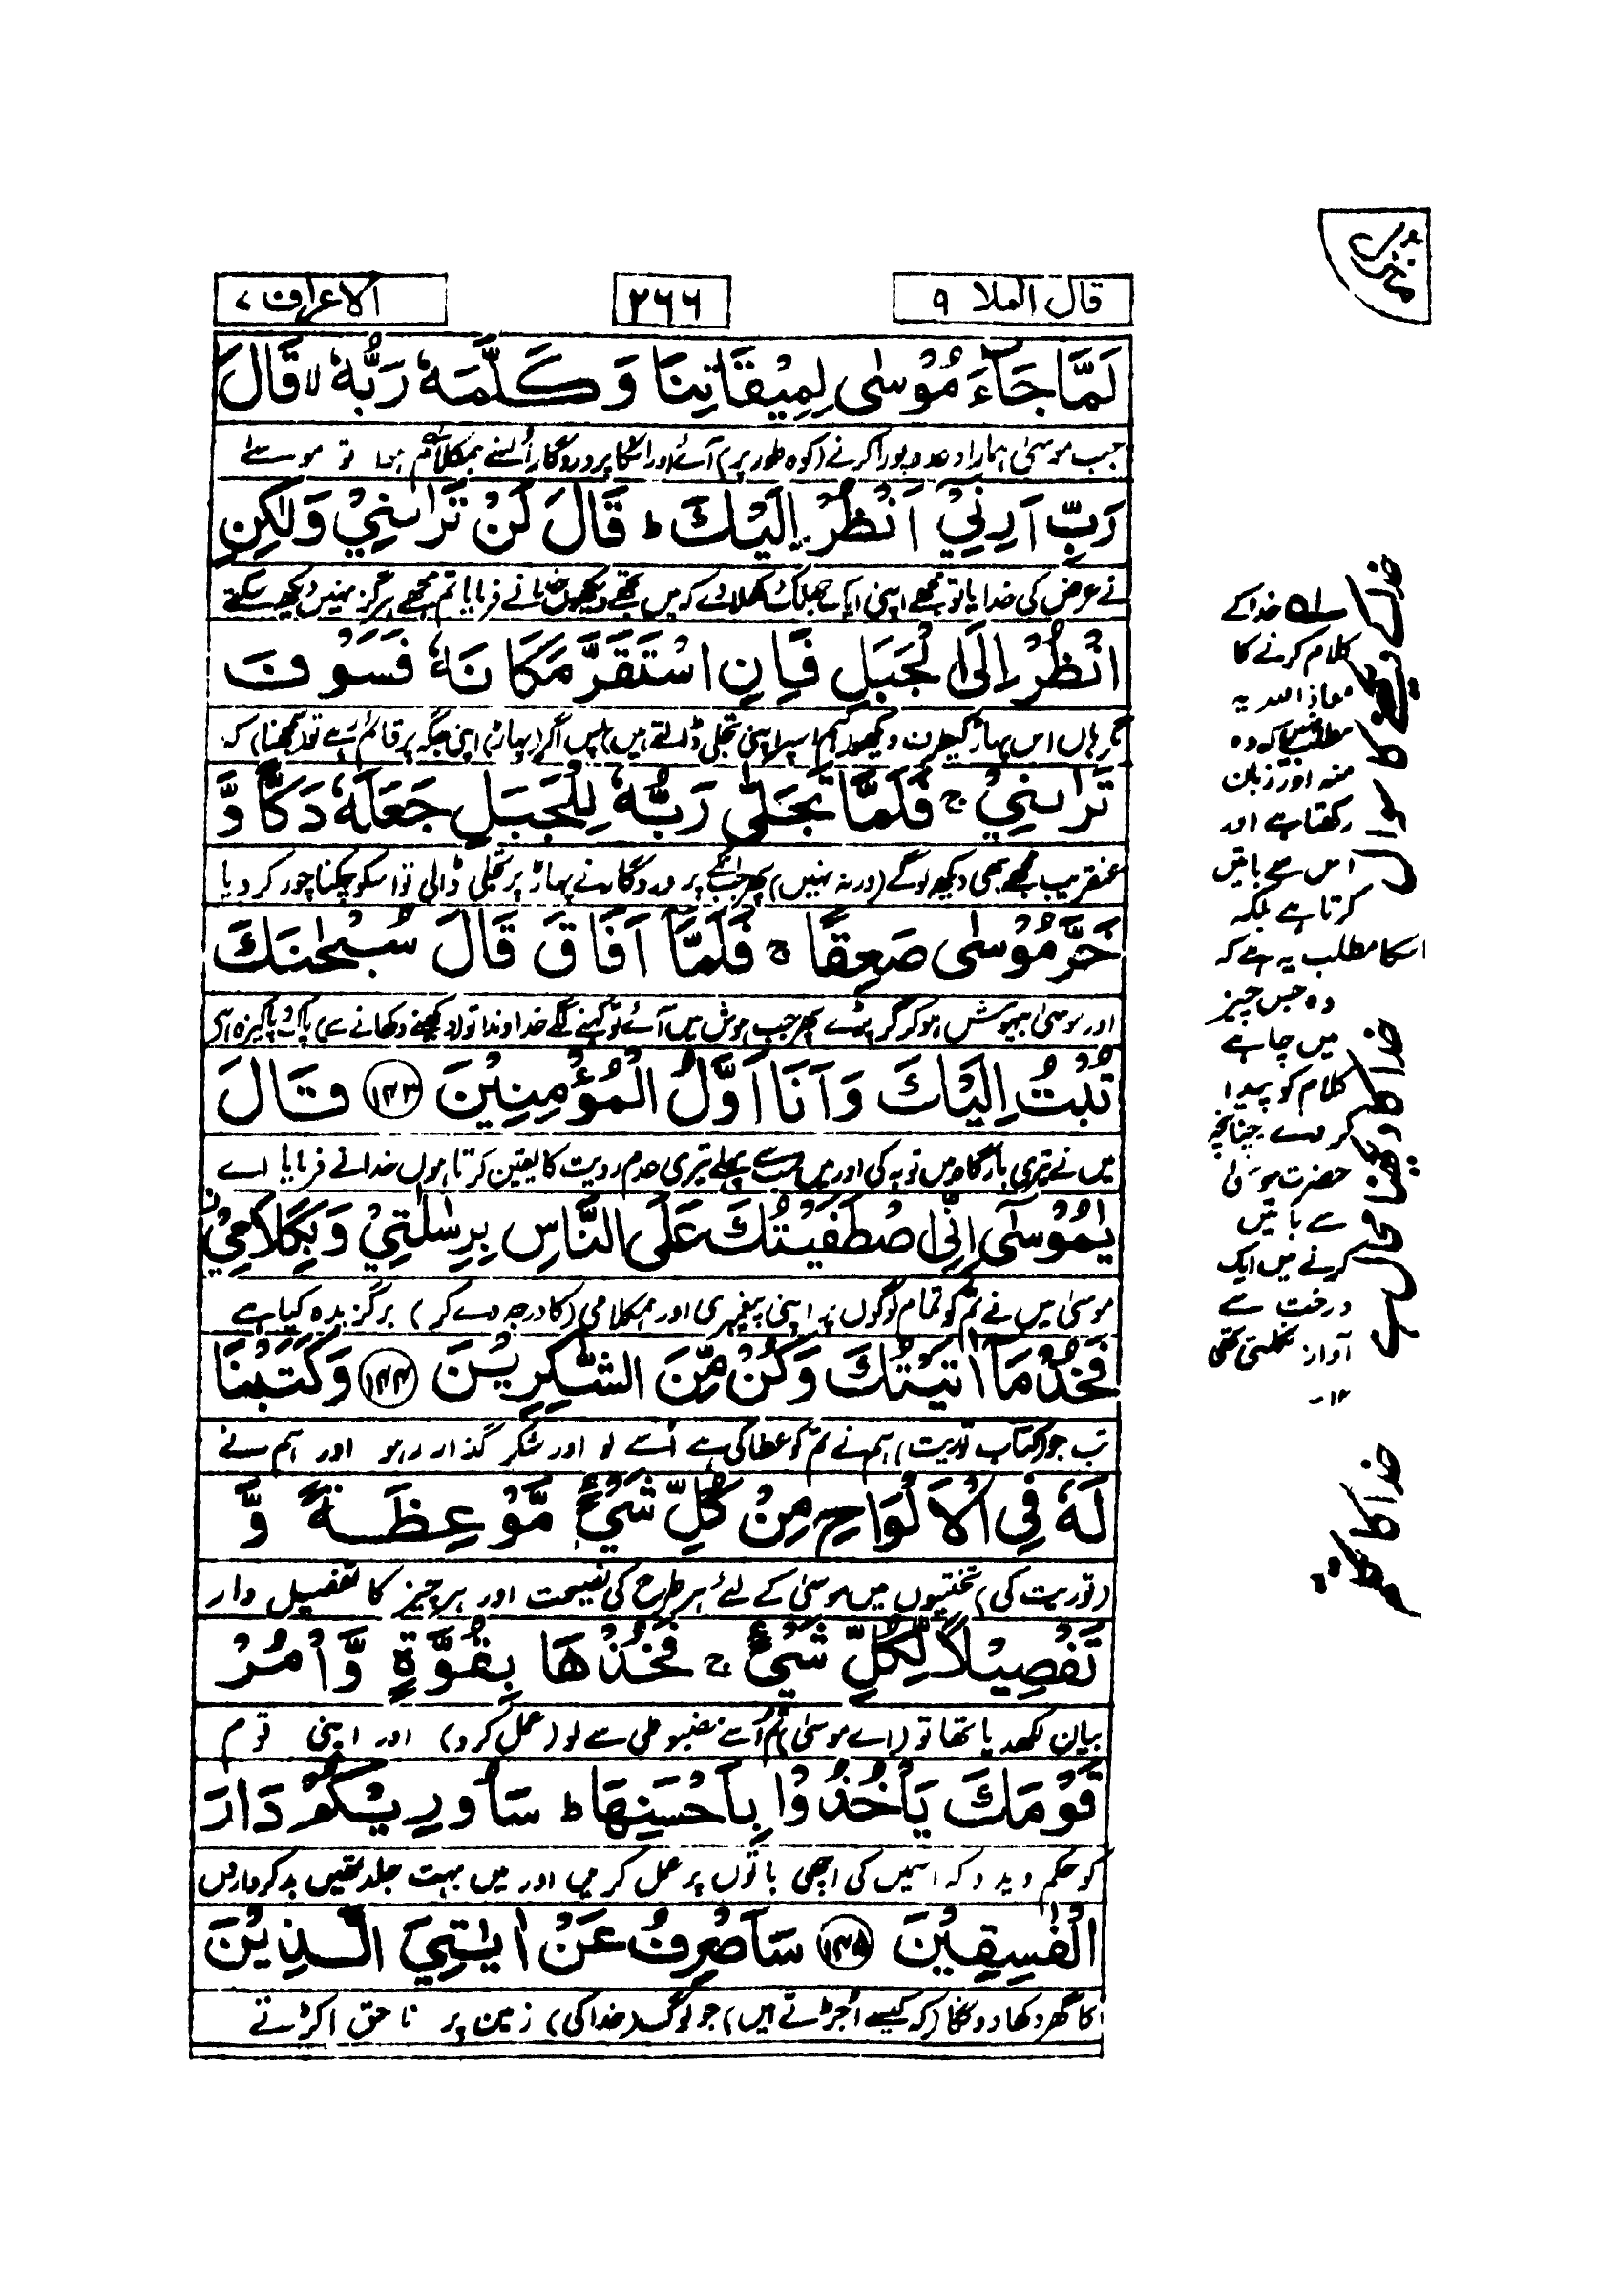 قال الملا ۹
۲۶۶
الاعراف ۷
لَمَّا جَآءَ مُوْسٰى لِمِيْقَاتِنَا وَ كَلَّمَهٗ رَبُّهٗ لا قَالَ
جب موسیٰ ہمارا وعدہ پورا کرنے (کوہ طور پر) آئے اور انکا پروردگار اُنسے ہمکلام ہوا تو موسےٰ
رَبِّ اَرِنِيْٓ اَنْظُرْ اِلَيْكَ ط قَالَ لَنْ تَرٰىنِيْ وَلٰكِنِ
نے عرض کی خدایا تو مجھے اپنی ایک جھلک دکھلا دے کہ میں تجھے دیکھوں خدا نے فرمایا تم مجھے ہرگز نہیں دیکھ سکتے
انْظُرْ اِلَى الْجَبَلِ فَاِنِ اسْتَقَرَّ مَكَانَهٗ فَسَوْفَ
مگر ہاں اس پہاڑ کیطرف دیکھو (ہم اسپر اپنی تجلی ڈالتے ہیں) پس اگر (پہاڑ) اپنی جگہ پر قائم رہے تو سمجھنا کہ
تَرٰىنِيْ ج فَلَمَّا تَجَلّٰى رَبُّهٗ لِلْجَبَلِ جَعَلَهٗ دَكًّا وَّ
عنقریب مجھے بھی دیکھ لوگے (ورنہ نہیں) پھر جب انکے پروردگار نے پہاڑ پر تجلی ڈالی تو اسکو چکنا چور کر دیا
خَرَّ مُوْسٰى صَعِقًا ج فَلَمَّآ اَفَاقَ قَالَ سُبْحٰنَكَ
اور موسیٰ بیہوش ہو کر گر پڑے پھر جب ہوش میں آئے تو کہنے لگے خداوندا تو دیکھنے دکھانے سے پاک و پاکیزہ ہے
تُبْتُ اِلَيْكَ وَ اَنَا اَوَّلُ الْمُؤْمِنِيْنَ ۱۴۳ قَالَ
میں نے تیری بارگاہ میں توبہ کی اور میں سب سے پہلے تیری عدم رویت کا یقین کرتا ہوں خدا نے فرمایا اے
يٰمُوْسٰٓى اِنِّى اصْطَفَيْتُكَ عَلَى النَّاسِ بِرِسٰلٰتِيْ وَ بِكَلَامِيْ
موسیٰ میں نے تم کو تمام لوگوں پر اپنی پیغمبری اور ہمکلامی (کا درجہ دے کر) برگزیدہ کیا ہے
فَخُذْ مَآ اٰتَيْتُكَ وَ كُنْ مِّنَ الشّٰكِرِيْنَ ۱۴۴ وَ كَتَبْنَا
تب جو (کتاب توریت) ہم نے تم کو عطا کی ہے اُسے لو اور شکر گذار رہو اور ہم نے
لَهٗ فِى الْاَلْوَاحِ مِنْ كُلِّ شَيْءٍ مَّوْعِظَةً وَّ
(توریت کی) تختیوں میں موسیٰ کے لئے ہر طرح کی نصیحت اور ہر چیز کا تفصیل وار
تَفْصِيْلًا لِّكُلِّ شَيْءٍ ج فَخُذْهَا بِقُوَّةٍ وَّ اْمُرْ
بیان لکھدیا تھا تو (اے موسیٰ) تم اُسے مضبوطی سے لو (عمل کرو) اور اپنی قوم
قَوْمَكَ يَاْخُذُوْا بِاَحْسَنِهَا ط سَاُورِيْكُمْ دَارَ
کو حکم دیدو کہ اسمیں کی اچھی باتوں پر عمل کریں اور میں بہت جلد تمھیں بدکرداروں
الْفٰسِقِيْنَ ۱۴۵ سَاَصْرِفُ عَنْ اٰيٰتِيَ الَّذِيْنَ
کا گھر دکھا دونگا (کہ کیسے اُجڑتے ہیں) جو لوگ (خدا کی) زمین پر ناحق اکڑتے
خدا کے
کلام کرنے کا
معاذ اللہ یہ
مطلب نہیں کہ وہ
منہ اور زبان
رکھتا ہے اور
اس سے باتیں
کرتا ہے بلکہ
اسکا مطلب یہ ہے کہ
وہ جس چیز
میں چاہے
کلام کو پیدا
کر دے چنانچہ
حضرت موسیٰ
سے باتیں
کرنے میں ایک
درخت سے
آواز نکلتی تھی
۱۲-
خدا کے دیکھنے کا سوال
خدا کا دیکھنا محال ہے